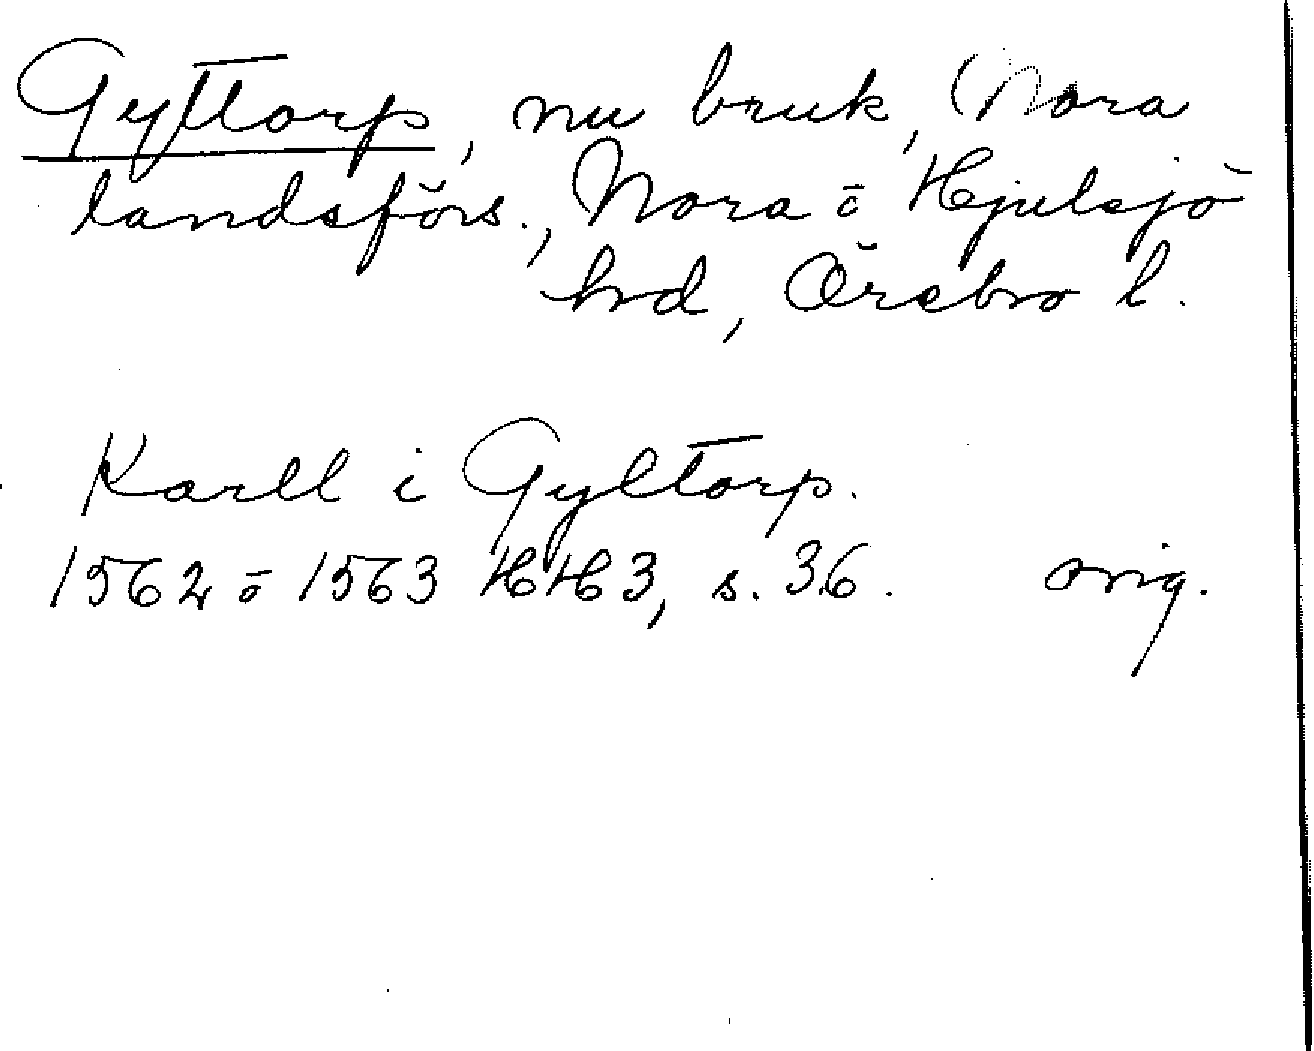 Gyttorp, nu bruk, Nora
landsförs., Nora o Hjulsjö
hrd, Örebro l.
Karll i Gyltorp.
1562 o 1563 HH3, s. 36. orig.